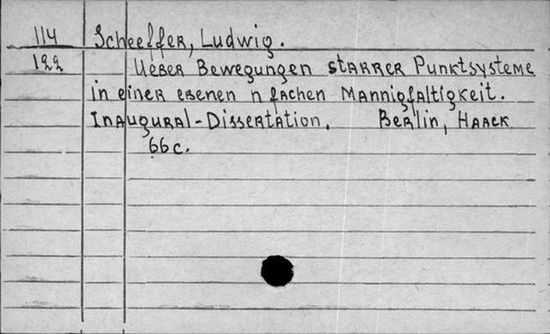 114 Scheeffer, Ludwig.
122 Ueber Bewegungen starrer Punktsysteme
in einer ebenen n fachen Mannigfaltigkeit.
Inaugural-Dissertation. Berlin, Haack
66c.